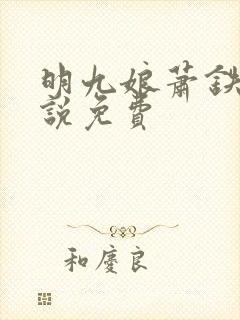 明九娘萧鉄
説免費
和慶良